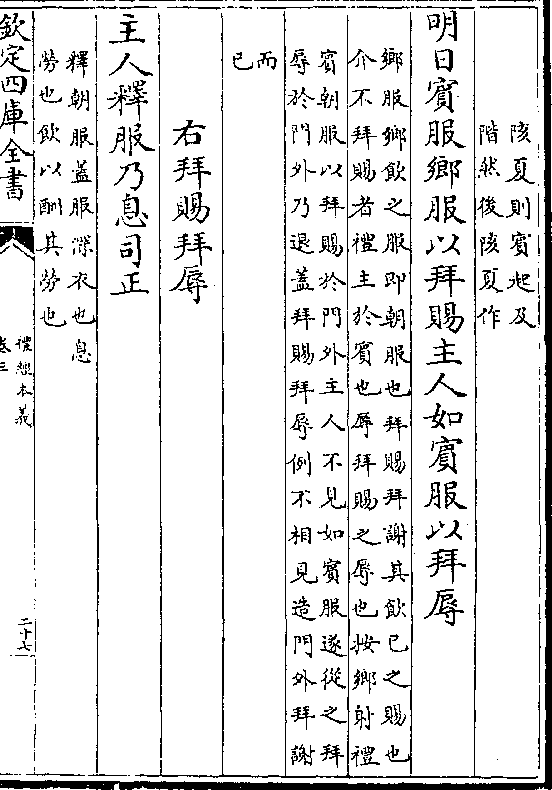 陔夏則賓起及
階然後陔夏作
明日賓服鄉服以拜賜主人如賓服以拜辱
鄉服鄉飲之服即朝服也拜賜拜謝其飲已之賜也
介不拜賜者禮主於賓也辱拜賜之辱也按鄉射禮
賓朝服以拜賜於門外主人不見如賓服遂從之拜
辱於門外乃退蓋拜賜拜辱例不相見造門外拜謝
而
已
右拜賜拜辱
主人釋服乃息司正
釋朝服蓋服深衣也息
勞也飲以酬其勞也
欽定四庫全書
禮經本義
卷三
二十七